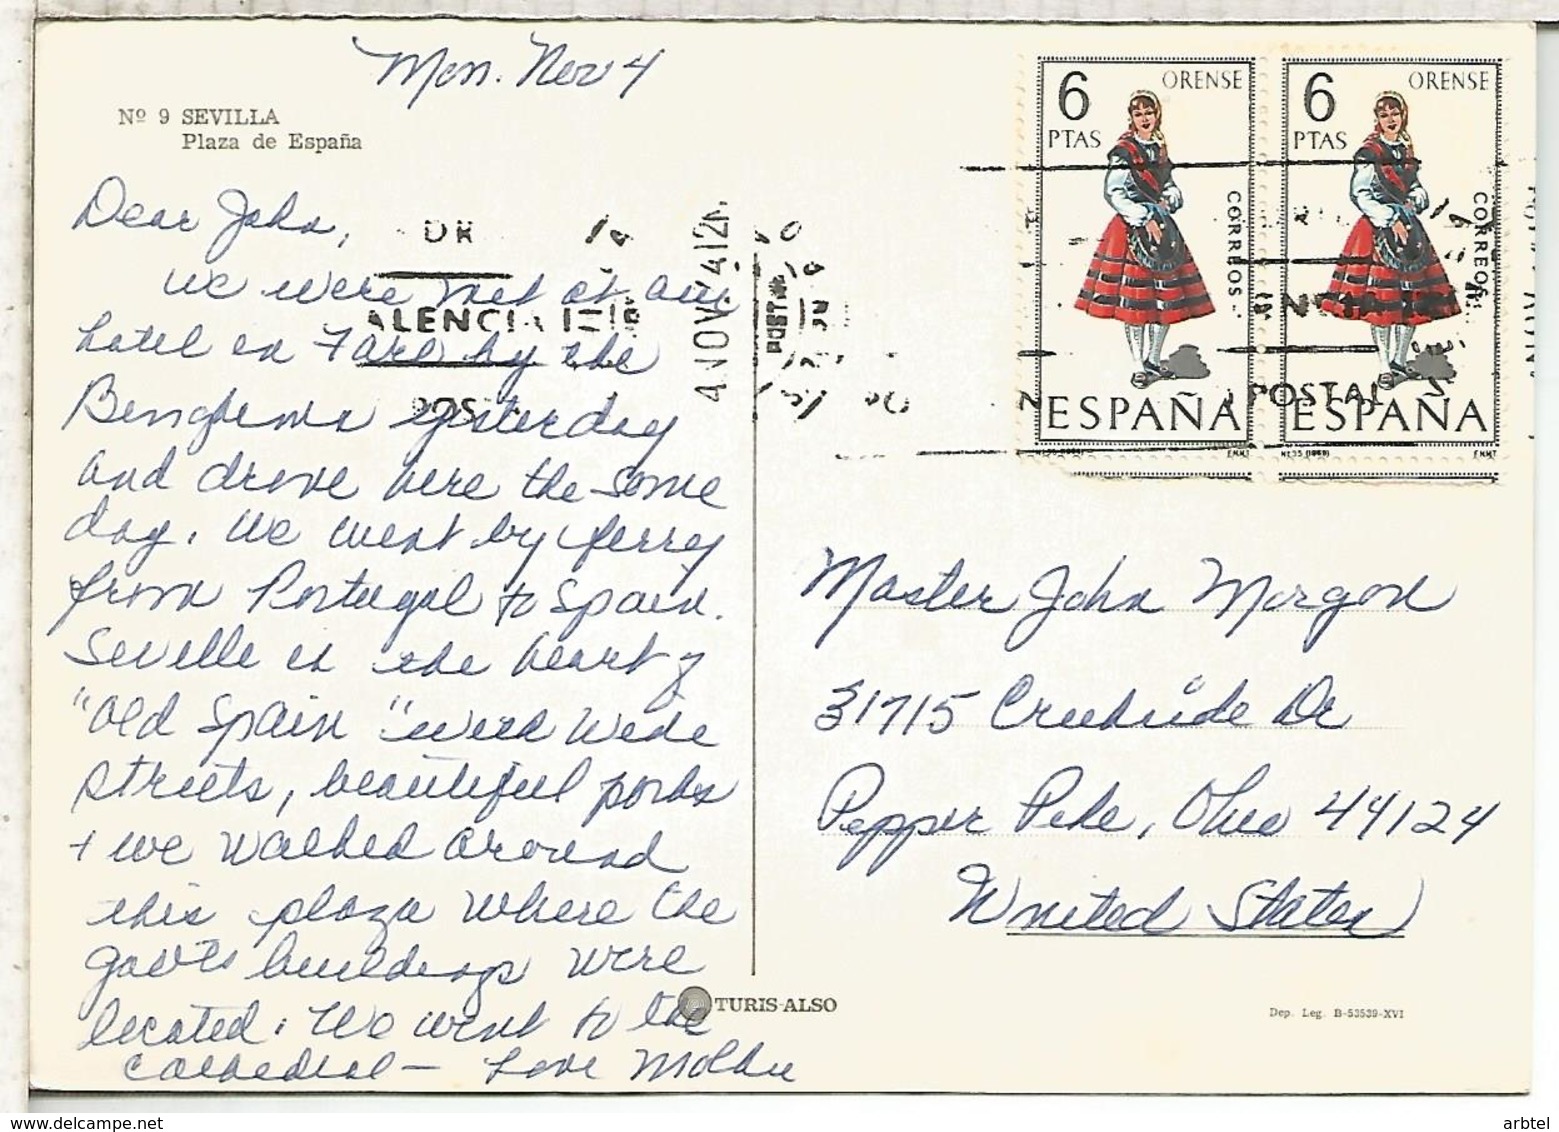 Mon. Nov 4
Nº 9 SEVILLA
Plaza de España
Dear John,
We were met at our
hotel in Faro by the
yesterday
and drove here the same
day. We went by ferry
from Portugal to Spain.
Seville is the heart of
"Old Spain" with wide
streets, beautiful parks
+ we walked around
this plaza where the
gov'ts buildings were
located. We went to the
Cathedral — Love
TURIS-ALSO
6
PTAS
ORENSE
CORREOS
ESPAÑA
F.N.M.T.
6
PTAS
ORENSE
CORREOS
ESPAÑA
F.N.M.T.
4 NOV 74 12
ALENCIA
POSTAL
Master John Morgan
31715 Creekside Dr
Pepper Pike, Ohio 44124
United States
Dep. Leg. B-53539-XVI
www.delcampe.net
arbtel